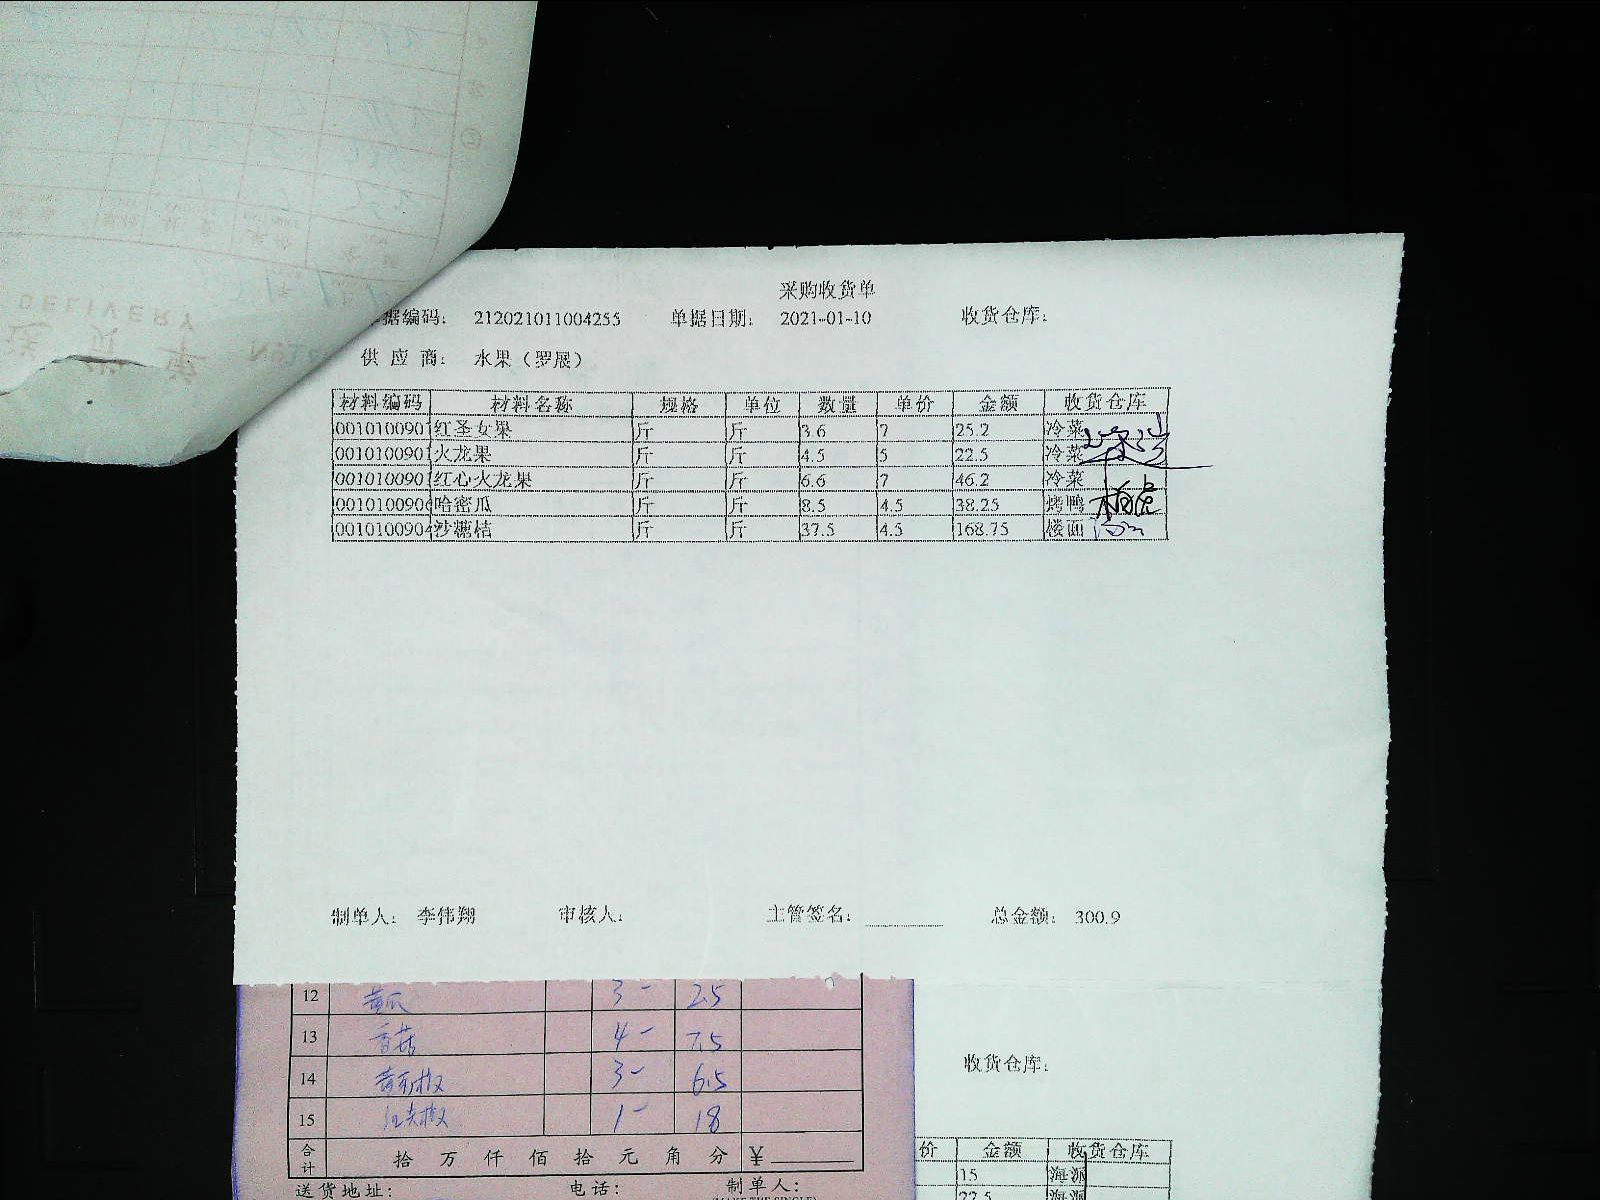 DELIVERY
采购收货单
据编码： 212021011004255 单据日期： 2021-01-10 收货仓库：
供 应 商： 水果（罗展）
材料编码 材料名称 规格 单位 数量 单价 金额 收货仓库
001010090 红圣女果 斤 斤 3.6 7 25.2 冷菜
001010090 火龙果 斤 斤 4.5 5 22.5 冷菜
001010090 红心火龙果 斤 斤 6.6 7 46.2 冷菜
001010090 哈密瓜 斤 斤 8.5 4.5 38.25 烤鸭
001010090 沙糖桔 斤 斤 37.5 4.5 168.75 楼面
制单人： 李伟翔 审核人： 主管签名： 总金额： 300.9
12 黄瓜 3- 2.5
13 香菇 4- 7.5
14 3- 6.5
15 红尖椒 1- 18
收货仓库：
合计 拾 万 仟 佰 拾 元 角 分 ¥
价 金额 收货仓库
15 海派
22.5 海派
送货地址： 电话： 制单人：